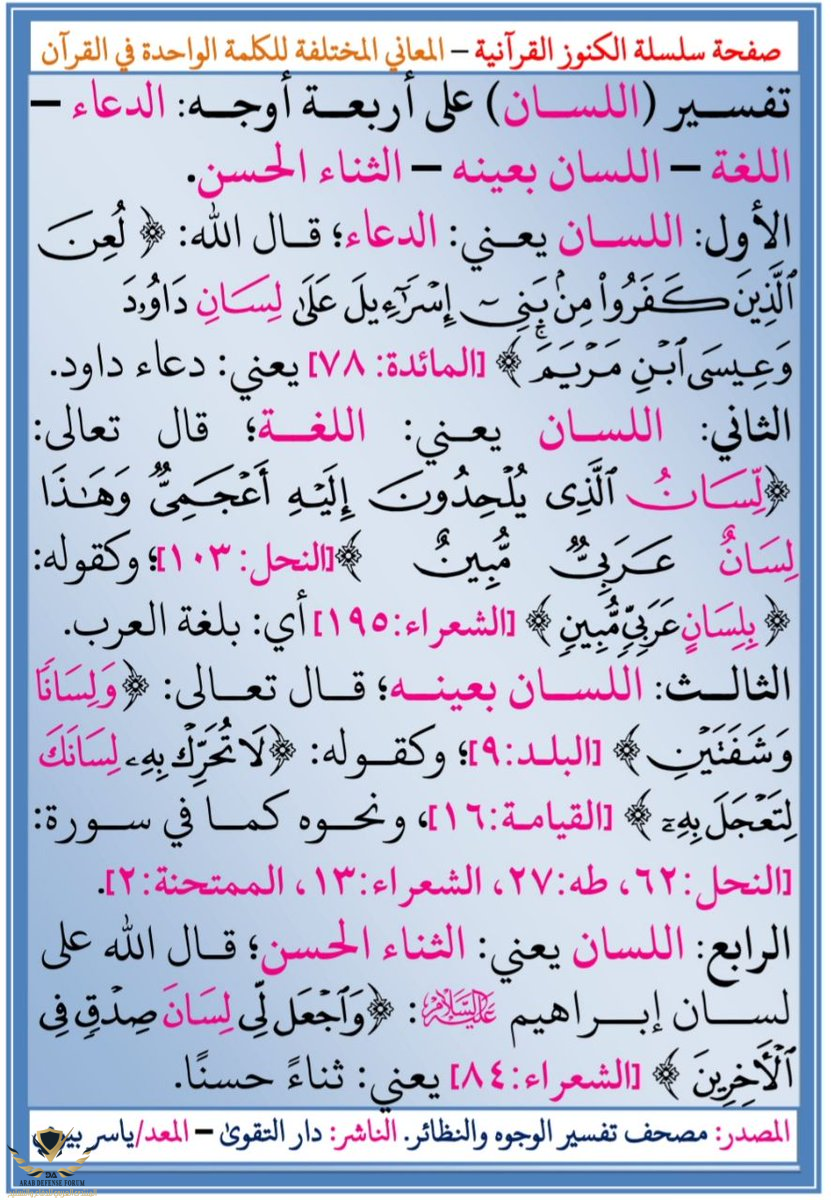 صفحة سلسلة الكنوز القرآنية – المعاني المختلفة للكلمة الواحدة في القرآن
تفسير (اللسان) على أربعة أوجه: الدعاء –
اللغة – اللسان بعينه – الثناء الحسن.
الأول: اللسان يعني: الدعاء؛ قال الله: ﴿ لُعِنَ
ٱلَّذِينَ كَفَرُواْ مِنۢ بَنِيٓ إِسۡرَٰٓءِيلَ عَلَىٰ لِسَانِ دَاوُۥدَ
وَعِيسَى ٱبۡنِ مَرۡيَمَۚ ﴾ [المائدة: ٧٨] يعني: دعاء داود.
الثاني: اللسان يعني: اللغة؛ قال تعالى:
﴿لِّسَانُ ٱلَّذِي يُلۡحِدُونَ إِلَيۡهِ أَعۡجَمِيّٞ وَهَٰذَا
لِسَانٌ عَرَبِيّٞ مُّبِينٌ ﴾[النحل: ١٠٣]؛ وكقوله:
﴿ بِلِسَانٍ عَرَبِيّٖ مُّبِينٖ ﴾ [الشعراء:١٩٥] أي: بلغة العرب.
الثالث: اللسان بعينه؛ قال تعالى: ﴿وَلِسَانٗا
وَشَفَتَيۡنِ ﴾ [البلد:٩]؛ وكقوله: ﴿لَا تُحَرِّكۡ بِهِۦ لِسَانَكَ
لِتَعۡجَلَ بِهِۦٓ ﴾ [القيامة:١٦]، ونحوه كما في سورة:
[النحل:٦٢، طه:٢٧، الشعراء:١٣، الممتحنة:٢].
الرابع: اللسان يعني: الثناء الحسن؛ قال الله على
لسان إبراهيم عليه السلام: ﴿وَٱجۡعَل لِّي لِسَانَ صِدۡقٖ فِي
ٱلۡأٓخِرِينَ ﴾ [الشعراء:٨٤] يعني: ثناءً حسنًا.
المصدر: مصحف تفسير الوجوه والنظائر. الناشر: دار التقوىٰ – المعد/ياسر
DA
ARAB DEFENSE FORUM